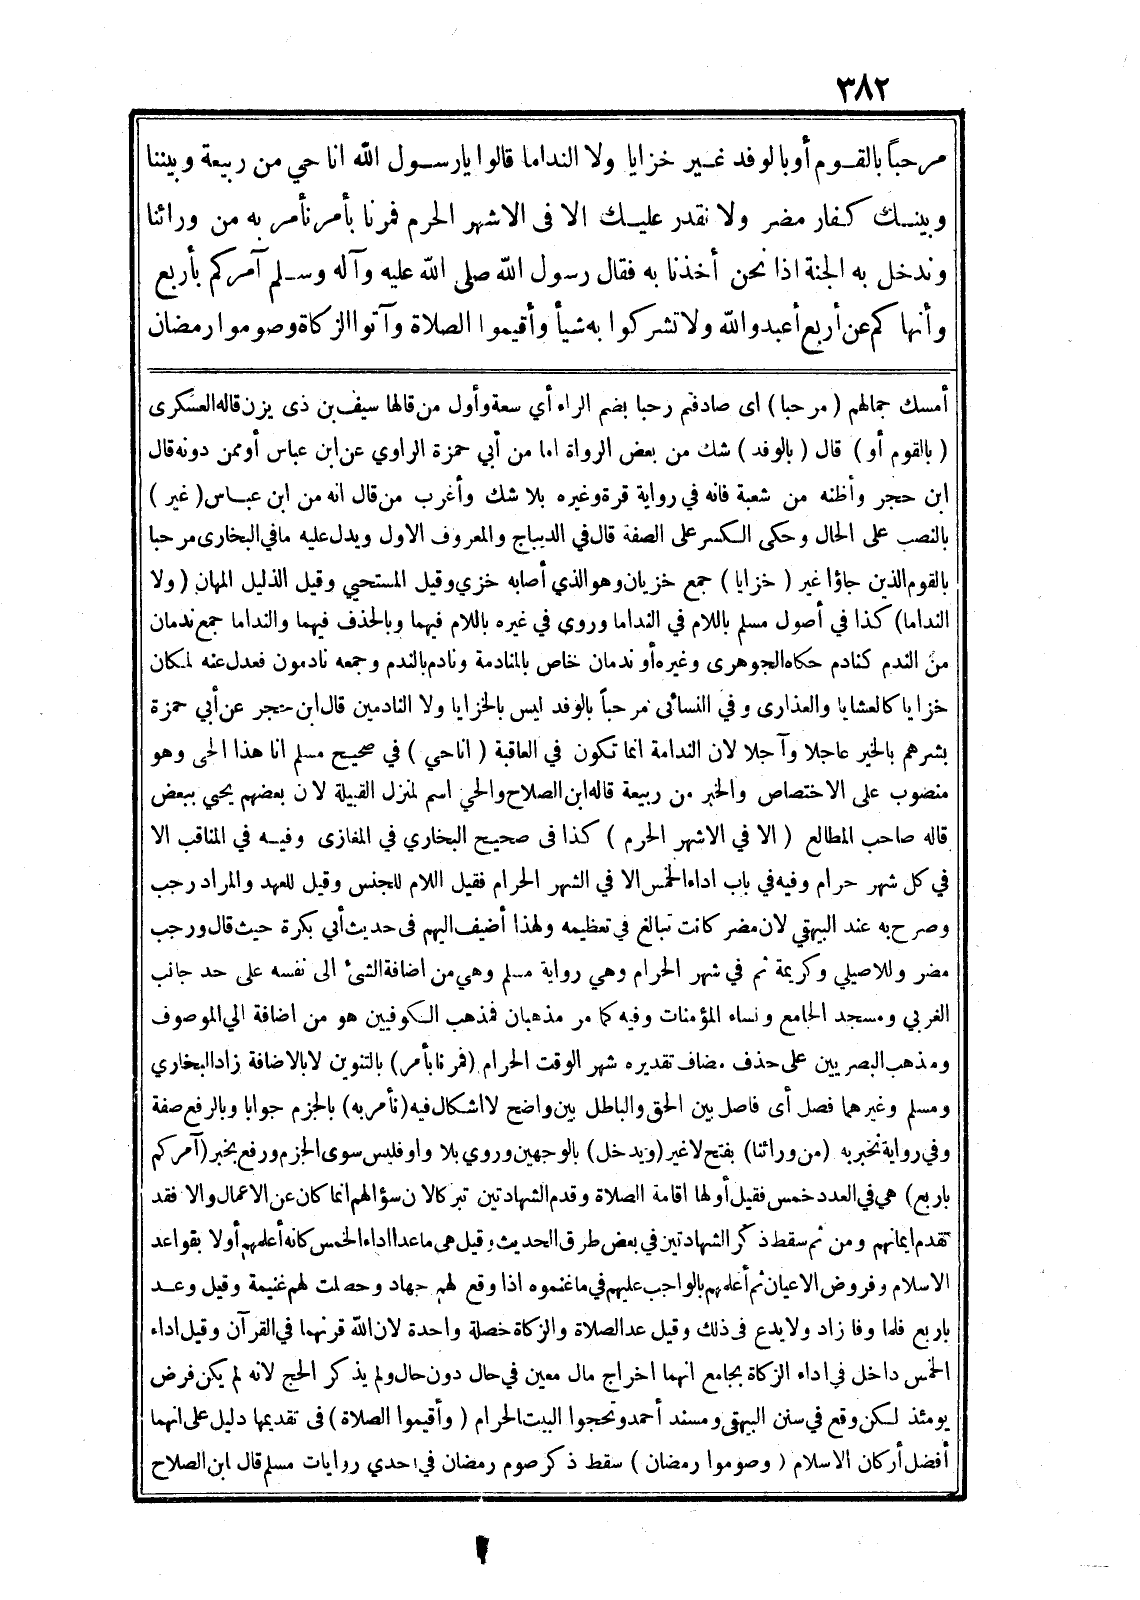 ٣٨٢
مرحباً بالقوم أو بالوفد غير خزايا ولا النداما قالوا يارسول الله انا حي من ربيعة وبيننا
وبينك كفار مضر ولا نقدر عليك الا فى الاشهر الحرم فمرنا بأمر نأمر به من ورائنا
وندخل به الجنة اذا نحن أخذنا به فقال رسول الله صلى الله عليه وآله وسلم آمركم بأربع
وأنهاكم عن أربع أعبدوا الله ولا تشركوا به شيأ وأقيموا الصلاة وآتوا الزكاة وصوموا رمضان
أمسك جمالهم ( مرحبا ) اى صادفتم رحبا بضم الراء أي سعة وأول من قالها سيف بن ذى يزن قاله العسكرى
( بالقوم أو ) قال ( بالوفد ) شك من بعض الرواة اما من أبي حمزة الراوي عن ابن عباس أو ممن دونه قال
ابن حجر وأظنه من شعبة فانه في رواية قرة وغيره بلا شك وأغرب من قال انه من ابن عباس ( غير )
بالنصب على الحال وحكى الكسر على الصفة قال في الديباج والمعروف الاول ويدل عليه ما في البخارى مرحبا
بالقوم الذين جاؤا غير ( خزايا ) جمع خزيان وهو الذي أصابه خزي وقيل المستحيي وقيل الذليل المهان ( ولا
النداما) كذا في أصول مسلم باللام في النداما وروى في غيره باللام فيهما وبالحذف فيهما والنداما جمع ندمان
من الندم كنادم حكاه الجوهرى وغيره أو ندمان خاص بالمنادمة ونادم بالندم وجمعه نادمون فعدل عنه لمكان
خزايا كالعشايا والعذارى وفي النسائى مرحباً بالوفد ليس بالخزايا ولا النادمين قال ابن حجر عن أبي حمزة
بشرهم بالخير عاجلا وآجلا لان الندامة انما تكون في العاقبة ( انا حي ) في صحيح مسلم انا هذا الحى وهو
منصوب على الاختصاص والخبر من ربيعة قاله ابن الصلاح والحي اسم لمنزل القبيلة لان بعضهم يحيي ببعض
قاله صاحب المطالع ( الا في الاشهر الحرم ) كذا فى صحيح البخاري في المغازى وفيه في المناقب الا
في كل شهر حرام وفيه في باب اداء الخمس الا في الشهر الحرام فقيل اللام للجنس وقيل للعهد والمراد رجب
وصرح به عند البيهقي لان مضر كانت تبالغ في تعظيمه ولهذا أضيف اليهم فى حديث أبي بكرة حيث قال ورجب
مضر وللاصيلي وكريمة ثم في شهر الحرام وهي رواية مسلم وهي من اضافة الشئ الى نفسه على حد جانب
الغربي ومسجد الجامع ونساء المؤمنات وفيه كما مر مذهبان فمذهب الكوفيين هو من اضافة الي الموصوف
ومذهب البصريين على حذف مضاف تقديره شهر الوقت الحرام (فمرنا بأمر) بالتنوين لا بالاضافة زاد البخاري
ومسلم وغيرهما فصل أى فاصل بين الحق والباطل بين واضح لا اشكال فيه (نأمر به) بالجزم جوابا وبالرفع صفة
وفي رواية نخبر به (من ورائنا) بفتح لا غير (ويدخل) بالوجهين وروي بلا واو فليس سوى الجزم ورفع بخبر (آمركم
باربع) هي في العدد خمس فقيل أولها اقامة الصلاة وقدم الشهادتين تبركا لان سؤالهم انما كان عن الاعمال والا فقد
تقدم ايمانهم ومن ثم سقط ذكر الشهادتين في بعض طرق الحديث وقيل هى ماعدا اداء الخمس كانه أعلمهم أولا بقواعد
الاسلام وفروض الاعيان ثم أعلمهم بالواجب عليهم في ما غنموه اذا وقع لهم جهاد وحصلت لهم غنيمة وقيل وعد
باربع فلما وفا زاد ولا يدع فى ذلك وقيل عد الصلاة والزكاة خصلة واحدة لان الله قرنهما في القرآن وقيل اداء
الخمس داخل في اداء الزكاة بجامع انهما اخراج مال معين في حال دون حال ولم يذكر الحج لانه لم يكن فرض
يومئذ لكن وقع في سنن البيهقى ومسند أحمد وتحجوا البيت الحرام ( وأقيموا الصلاة ) فى تقديمها دليل على انهما
أفضل أركان الاسلام ( وصوموا رمضان ) سقط ذكر صوم رمضان في احدي روايات مسلم قال ابن الصلاح